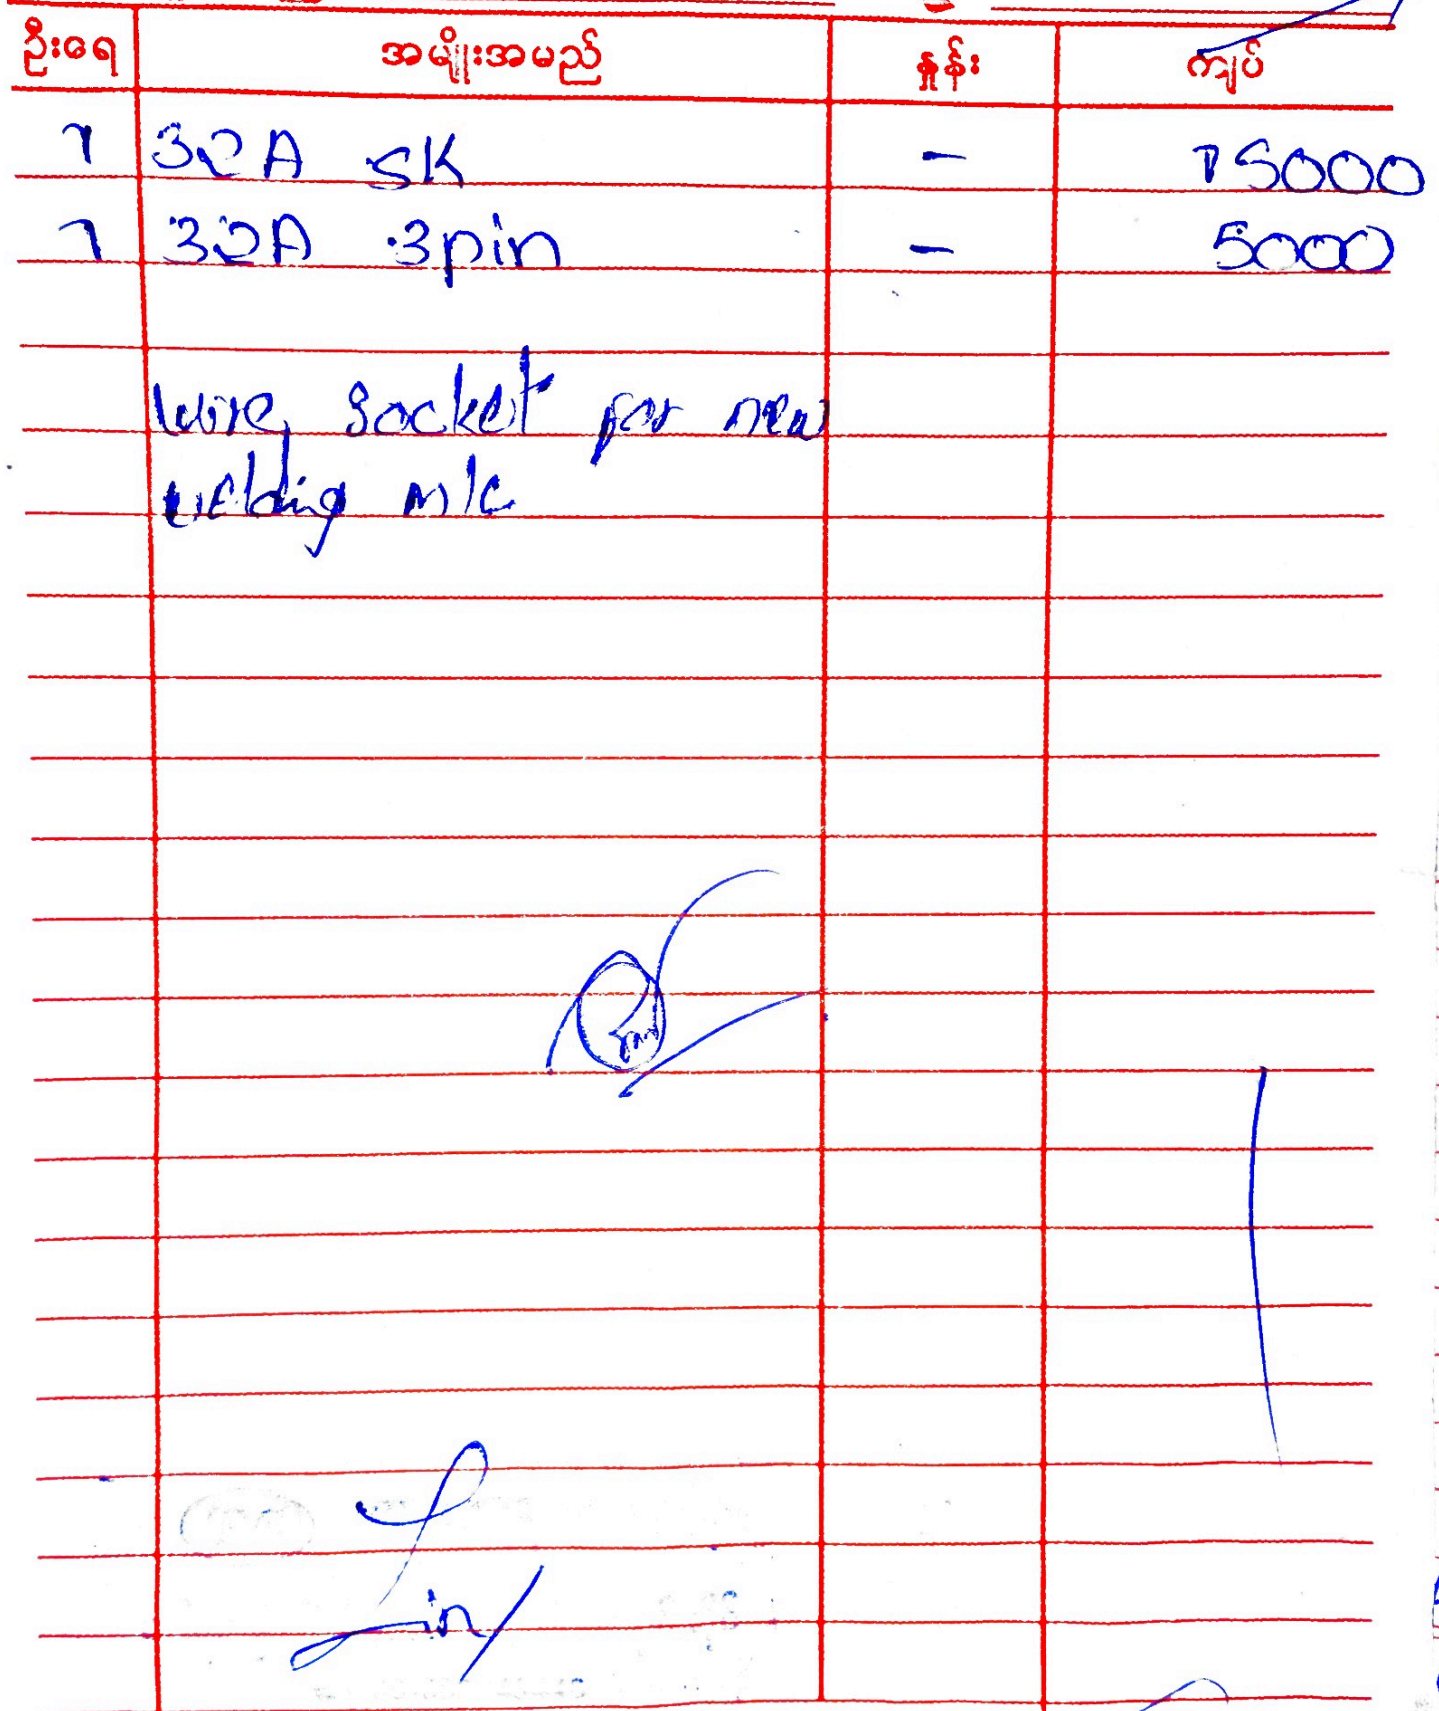 ဦးရေ အမျိုးအမည် နှုန်း ကျပ်
1 32A SK - 15000
1 32A 3pin - 5000
wire, socket for new
welding M/C